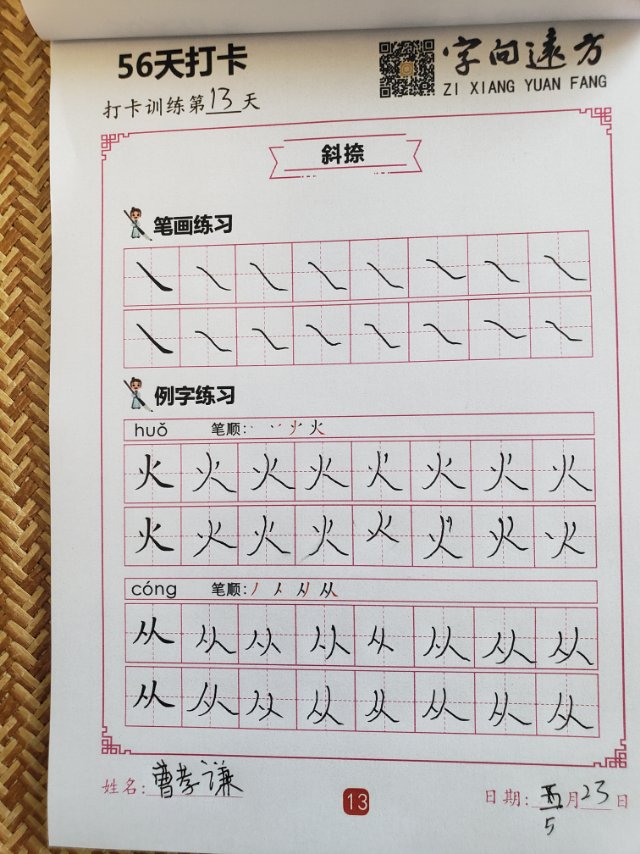 56天打卡
字向远方
ZI XIANG YUAN FANG
打卡训练第13天
斜捺
笔画练习
例字练习
huǒ 笔顺:丶 丷 少 火
火 火 火 火 火 火 火 火
火 火 火 火 火 火 火 火
cóng 笔顺:丿 人 从 从
从 从 从 从 从 从 从 从
从 从 从 从 从 从 从 从
姓名:曹孝谦
13
日期:5月23日